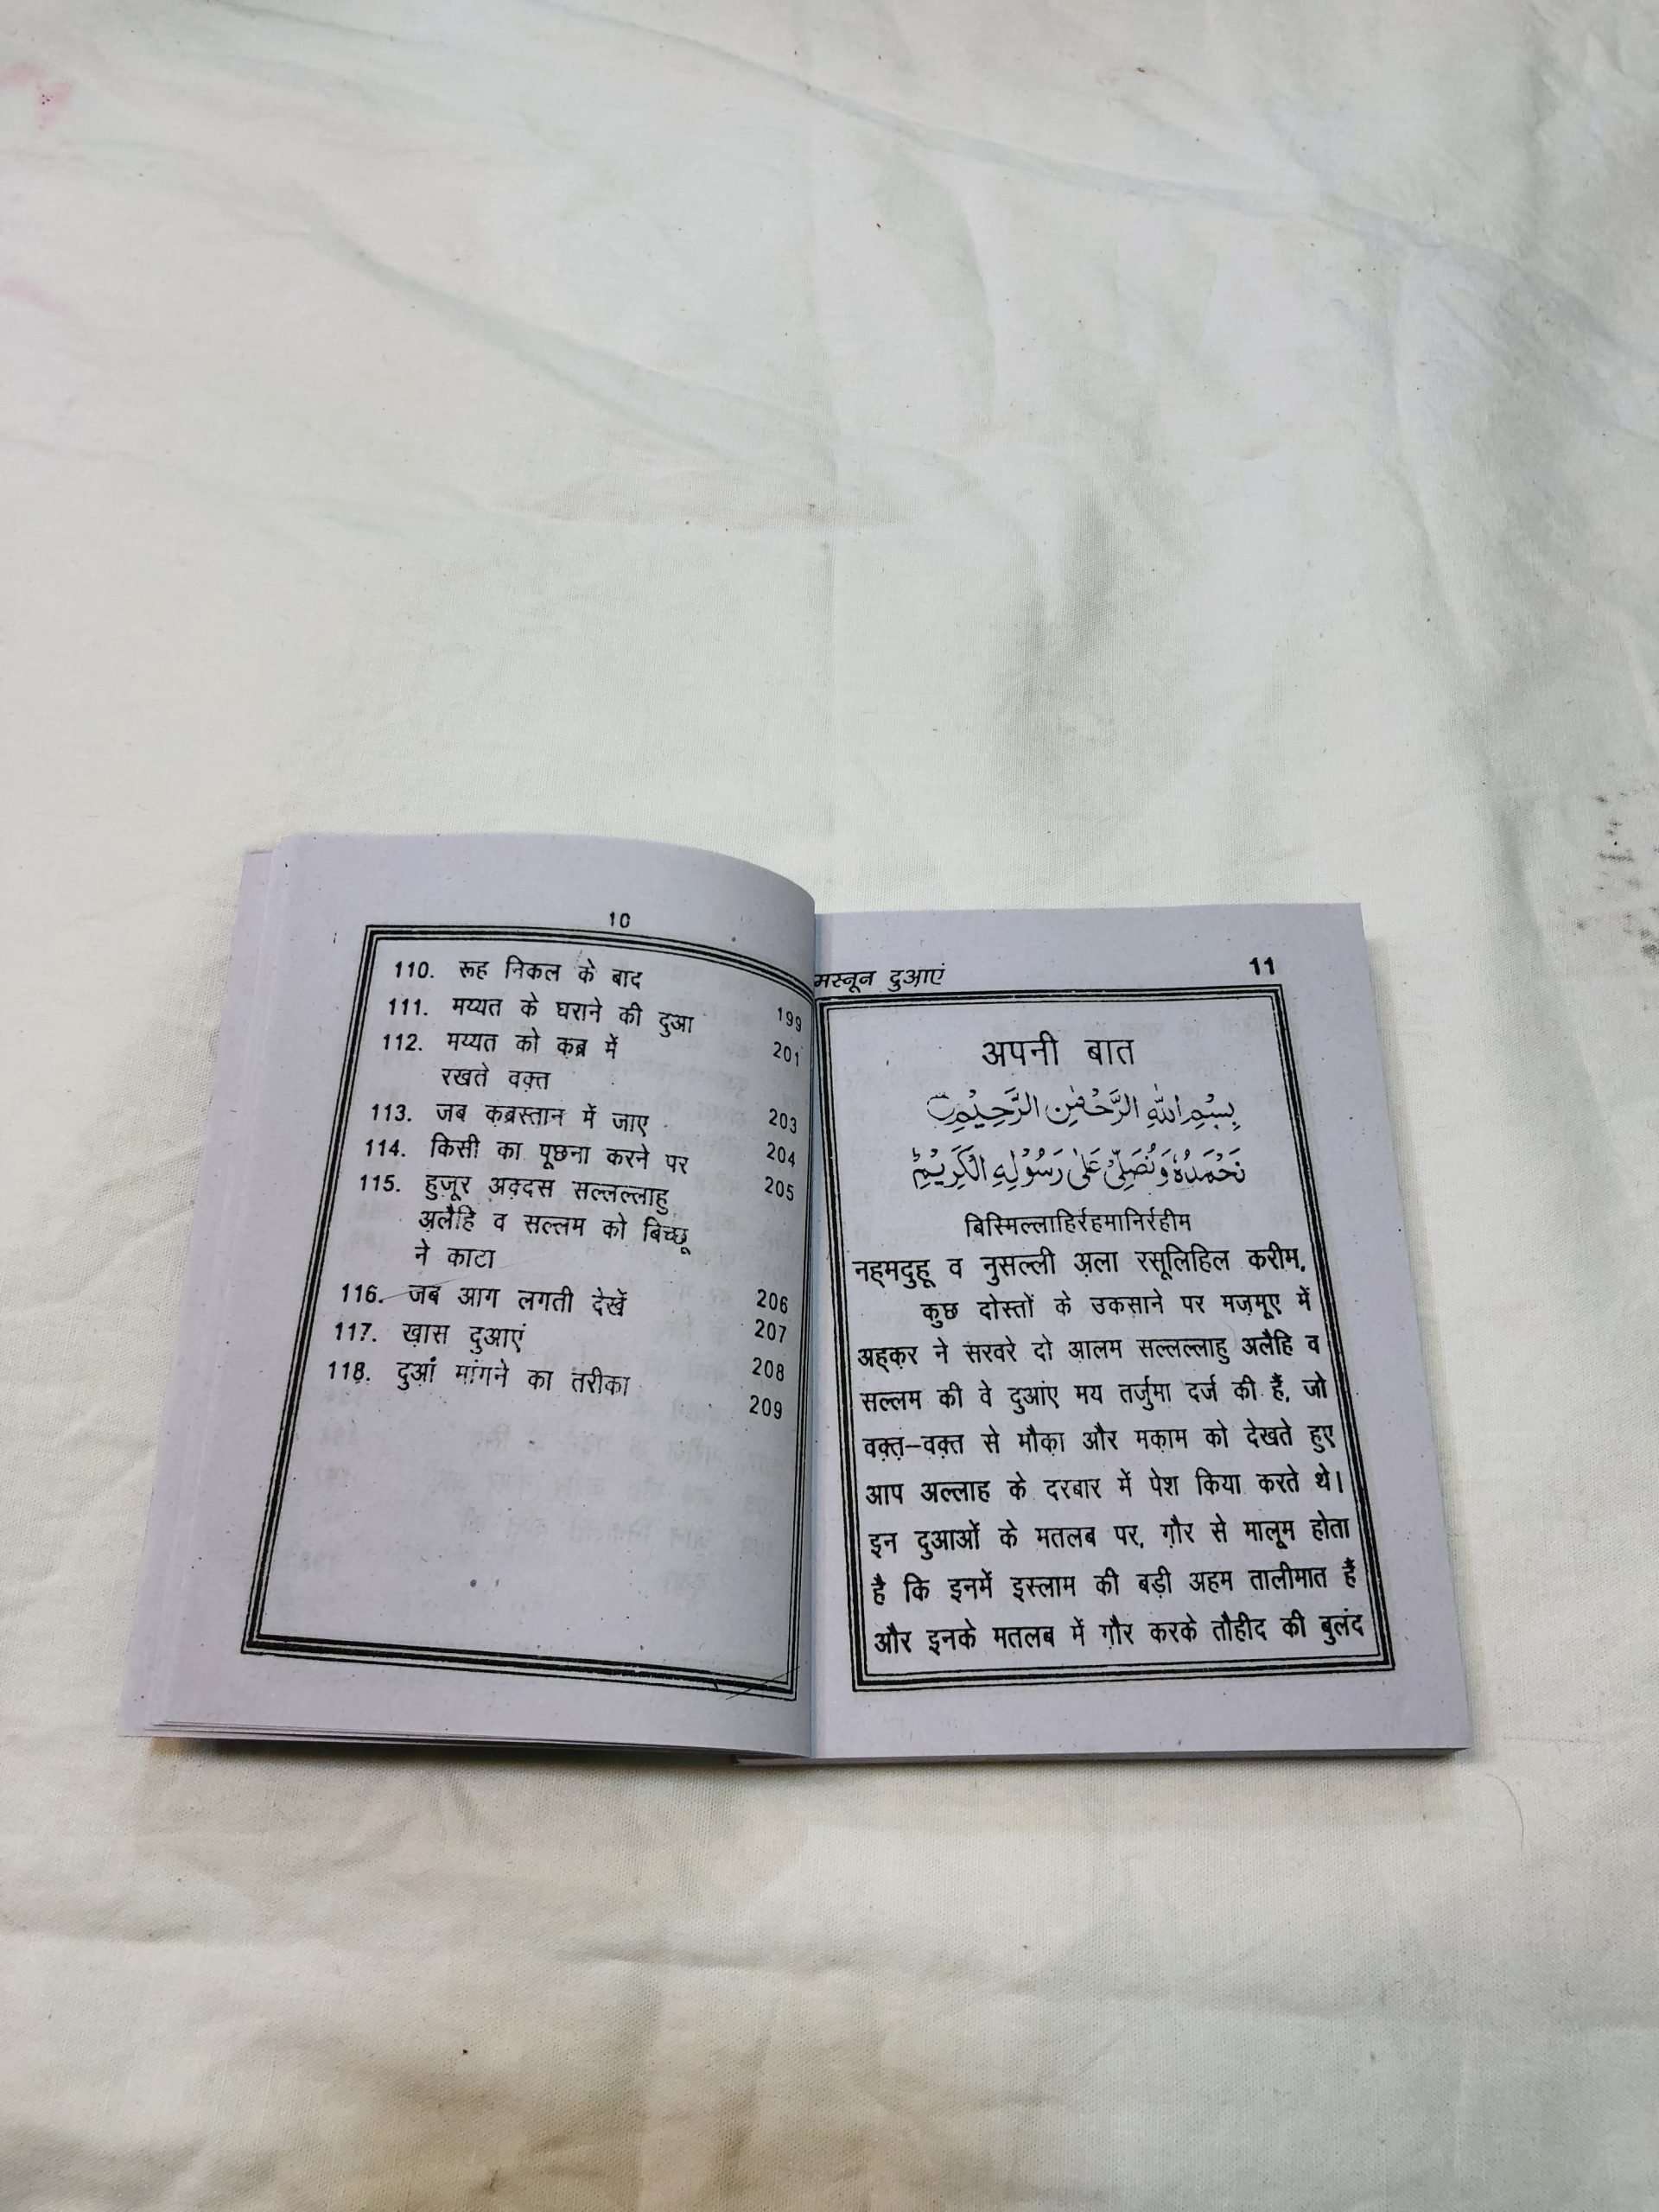 10
110. रूह निकल के बाद 199
111. मय्यत के घराने की दुआ 201
112. मय्यत को कब्र में
रखते वक़्त 203
113. जब क़ब्रस्तान में जाए 204
114. किसी का पूछना करने पर 205
115. हुजूर अक़्दस सल्लल्लाहु
अलैहि व सल्लम को बिच्छू
ने काटा 206
116. जब आग लगती देखें 207
117. ख़ास दुआएं 208
118. दुआं मांगने का तरीका 209
मस्नून दुआएं 11
अपनी बात
بِسْمِ اللهِ الرَّحْمٰنِ الرَّحِيْمِ
نَحْمَدُهٗ وَنُصَلِّىْ عَلٰى رَسُوْلِهِ الْكَرِيْمِ ط
बिस्मिल्लाहिर्रहमानिर्रहीम
नह्मदुहू व नुसल्ली अ़ला रसूलिहिल करीम,
कुछ दोस्तों के उकसाने पर मज़मूए में
अह्क़र ने सरवरे दो आलम सल्लल्लाहु अलैहि व
सल्लम की वे दुआंए मय तर्जुमा दर्ज की हैं, जो
वक़्त-वक़्त से मौक़ा और मक़ाम को देखते हुए
आप अल्लाह के दरबार में पेश किया करते थे।
इन दुआओं के मतलब पर, ग़ौर से मालूम होता
है कि इनमें इस्लाम की बड़ी अहम तालीमात हैं
और इनके मतलब में ग़ौर करके तौहीद की बुलंद